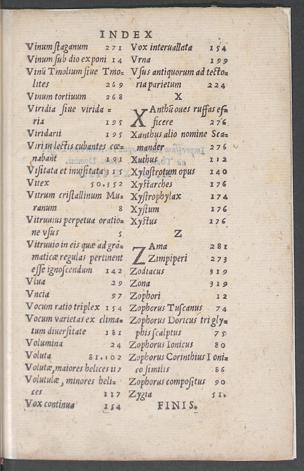 INDEX
Vinum staganum 271
Vinum sub dio exponi 14
Vinũ Tmolium siue Tmo-
lites 269
Vinum tortiuum 268
Viridia siue virida-
ria 195
Viridarii 195
Viri in lectis cubantes cœ-
nabant 191
Visitata et inusitata 115
Vitex 50.152
Vitrum cristallinum Mu-
ranum 8
Vitruuius perpetua oratio-
ne vsus 5
Vitruuio in eis quæ ad gra-
maticæ regulas pertinent
esse ignoscendum 142
Viua 29
Vncia 97
Vocum ratio triplex 154
Vocum varietas ex clima-
tum diuersitate 181
Volumina 24
Voluta 81.102
Volutæ, maiores helices 117
Volutulæ, minores heli-
ces 117
Vox continua 154
Vox interuallata 154
Vrna 199
Vsus antiquorum ad tecto-
ria parietum 224
X
Xanthũ oues ruffas ef-
ficere 276
Xanthus alio nomine Sca-
mander 276
Xuthus 112
Xylostrotum opus 140
Xystarches 176
Xystrophylax 174
Xystum 176
Xystus 176
Z
Zama 281
Zimpiperi 273
Zodiacus 319
Zona 319
Zophori 12
Zophorus Tuscanus 74
Zophorus Doricus trigly-
phis scalptus 75
Zophorus Ionicus 80
Zophorus Corinthius Ioni-
co similis 86
Zophorus compositus 90
Zygia 51.
FINIS.